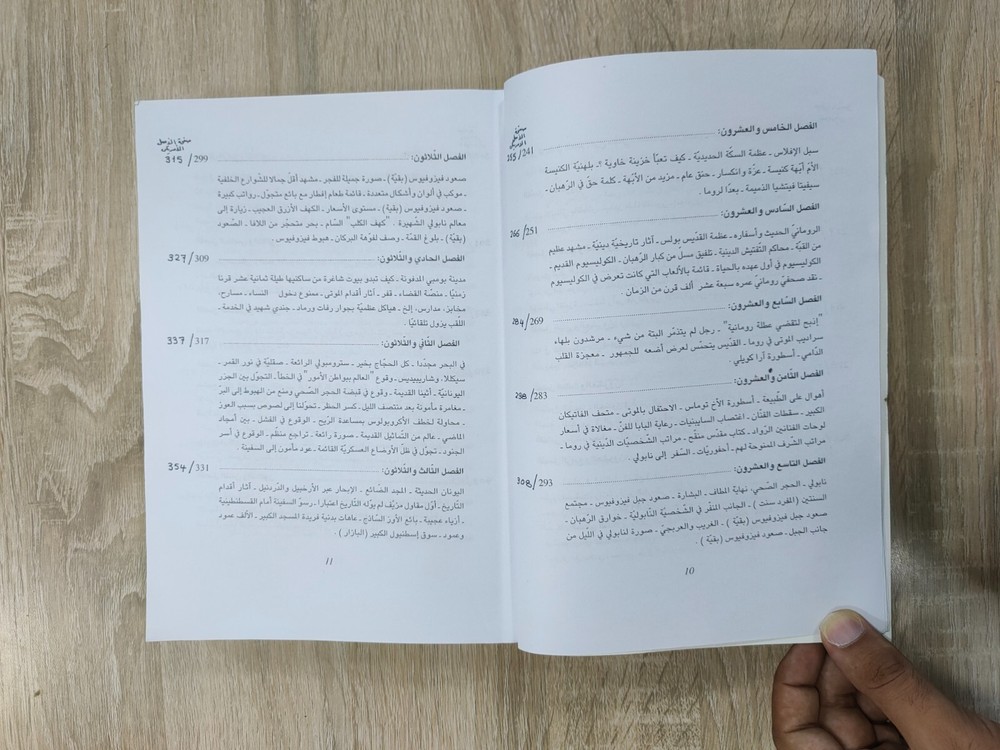 الفصل الخامس والعشرون:
255/241
سبل الإفلاس ـ عظمة السكّة الحديديّة ـ كيف تعبّأ خزينة خاوية ؟ـ بلهنيّة الكنيسة
الأمّ أبّهة كنيسة ـ عزّة وانكسار ـ حنق عام ـ مزيد من الأبّهة ـ كلمة حقّ في الرّهبان ـ
سيفيتا فيتشيا الذميمة ـ بعدًا لروما .
الفصل السّادس والعشرون:
266/251
الرومانيّ الحديث وأسفاره ـ عظمة القدّيس بولس ـ آثار تاريخيّة دينيّة ـ مشهد عظيم
من القبّة ـ محاكم التّفتيش الدينية ـ تلفيق مسل من كبار الرّهبان ـ الكوليسيوم القديم ـ
الكوليسيوم في أول عهده بالحياة ـ قائمة بالألعاب التي كانت تعرض في الكوليسيوم
ـ نقد صحفيّ رومانيّ عمره سبعة عشر ألف قرن من الزمان .
الفصل السّابع والعشرون:
284/269
"إذبح لتقضي عطلة رومانية" ـ رجل لم يتذمّر البتة من شيء ـ مرشدون بلهاء
سراديب الموتى في روما ـ القدّيس يتحمّس لعرض أضعه للجمهور ـ معجزة القلب
الدّامي ـ أسطورة آرا كويلي.
الفصل الثّامن والعشرون:
298/283
أهوال على الطّبيعة ـ أسطورة الأخ توماس ـ الاحتفال بالموتى ـ متحف الفاتيكان
الكبير ـ سقطات الفنّان ـ اغتصاب السابينيات ـ رعاية البابا للفنّ ـ مغالاة في أسعار
لوحات الفنانين الرّواد ـ كتاب مقدّس منقّح ـ مراتب الشخصيّات الدّينيّة في روما ـ
مراتب الشّرف الممنوحة لهم ـ أحفوريّات ـ السّفر إلى نابولي .
الفصل التاسع والعشرون:
308/293
نابولي ـ الحجر الصّحي: نهاية المطاف ـ البشارة ـ صعود جبل فيزوفيوس ـ مجتمع
السنتين (المفرد سنت ) ـ الجانب المنفّر في الشخصيّة النّابوليّة ـ خوارق الرّهبان ـ
صعود جبل فيزوفيوس (بقيّة ) ـ الغريب والعربجيّ ـ صورة لنابولي في الليل من
جانب الجبل ـ صعود فيزوفيوس (بقيّة ) .
10
الفصل الثّلاثون:
315/299
صعود فيزوفيوس (بقية) ـ صورة جميلة للفجر ـ مشهد أقلّ جمالا للشّوارع الخلفيّة
ـ موكب في ألوان وأشكال متعددة ـ قائمة طعام إفطار مع بائع متجوّل ـ رواتب كبيرة
ـ صعود فيزوفيوس (بقية) ـ مستوى الأسعار ـ الكهف الأزرق العجيب ـ زيارة إلى
معالم نابولي الشهيرة . "كهف الكلب" السّام ـ بحر متحجّر من اللافا ـ الصّعود
(بقيّة) ـ بلوغ القمّة ـ وصف لفوّهة البركان ـ هبوط فيزوفيوس .
الفصل الحادي والثّلاثون:
327/309
مدينة بومبي المدفونة ـ كيف تبدو بيوت شاغرة من ساكنيها طيلة ثمانية عشر قرنا
زمنيًا ـ منصّة القضاء ـ قفر ـ آثار أقدام الموتى ـ ممنوع دخول النساء ـ مسارح،
مخابز، مدارس، إلخ ـ هياكل عظميّة بجوار رفات ورماد ـ جندي شهيد في الخدمة ـ
اللّقب يزول تلقائيًا .
الفصل الثّاني والثّلاثون:
337/317
في البحر مجدّدا ـ كل الحجّاج بخير ـ سترومبولي الرائعة ـ صقليّة في نور القمر ـ
سيكلاّ، وشاريبيديس ـ وقوع "العالم ببواطن الأمور" في الخطأ ـ التجوّل بين الجزر
اليونانيّة ـ أثينا القديمة ـ وقوع في قبضة الحجر الصّحي ومنع من الهبوط إلى البرّ
ـ مغامرة مأمونة بعد منتصف الليل ـ كسر الحظر ـ تحوّلنا إلى لصوص بسبب العوز
ـ محاولة لخطف الأكروبولوس بمساعدة الرّيح ـ الوقوع في الفشل ـ بين أمجاد
الماضي ـ عالم من التّماثيل القديمة ـ صورة رائعة ـ تراجع منظّم ـ الوقوع في أسر
الجنود ـ تجوّل في ظلّ الأوضاع العسكريّة القائمة ـ عود مأمون إلى السفينة .
الفصل الثالث والثّلاثون:
354/331
اليونان الحديثة ـ المجد الضّائع ـ الإبحار عبر الأرخبيل والدّردنيل ـ آثار أقدام
التّاريخ ـ أوّل مقاول مزيّف لم يوله التّاريخ اعتبارا ـ رسوّ السفينة أمام القسطنطينية
ـ أزياء عجيبة ـ بائع الأوزّ السّاذج ـ عاهات بدنية فريدة المسجد الكبير ـ الألف عمود
وعمود ـ سوق إسطنبول الكبير (البازار ) .
11